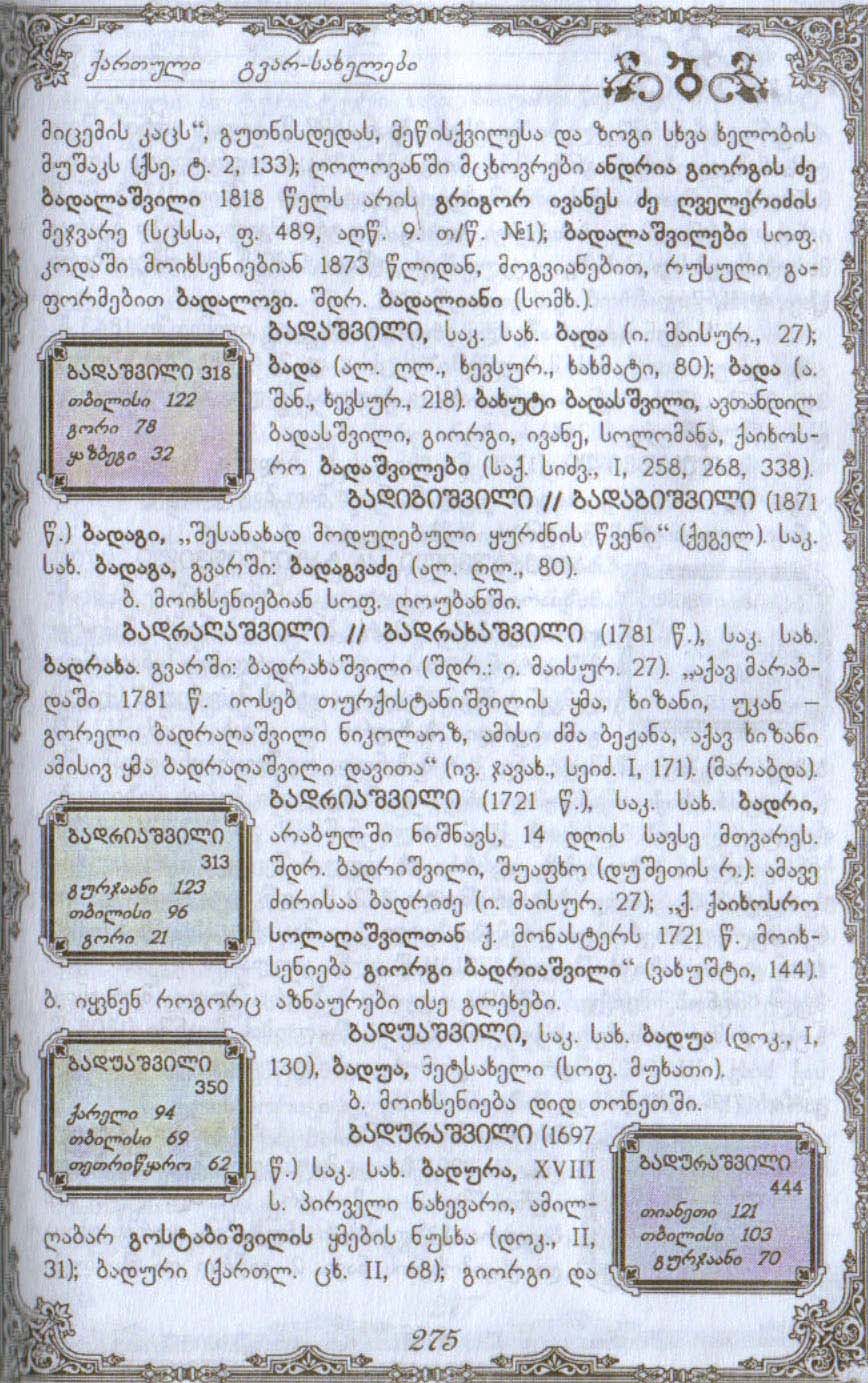 ქართული გვარ-სახელები
მიცემის კაცს“, გუთნისდედას, მეწისქვილესა და ზოგი სხვა ხელობის
მუშაკს (ქსე, ტ. 2, 133); ღოლოვანში მცხოვრები ანდრია გიორგის ძე
ბადალაშვილი 1818 წელს არის გრიგორ ივანეს ძე ღველერიძის
მეჯვარე (სცსსა, ფ. 489, აღწ. 9. თ/წ. №1); ბადალაშვილები სოფ.
კოდაში მოიხსენიებიან 1873 წლიდან, მოგვიანებით, რუსული გა-
ფორმებით ბადალოვი. შდრ. ბადალიანი (სომხ.).
ბადაშვილი, საკ. სახ. ბადა (ი. მაისურ., 27);
ბადა (ალ. ღლ., ხევსურ., ხახმატი, 80); ბადა (ა.
შან., ხევსურ., 218). ბახუტი ბადასშვილი, ავთანდილ
ბადასშვილი, გიორგი, ივანე, სოლომანა, ქაიხოს-
რო ბადაშვილები (საქ. სიძვ., I, 258, 268, 338).
ბადაშვილი 318
თბილისი 122
გორი 78
ყაზბეგი 32
ბადიგიშვილი // ბადაგიშვილი (1871
წ.) ბადაგი, „შესანახად მოდუღებული ყურძნის წვენი“ (ქეგელ). საკ.
სახ. ბადაგა, გვარში: ბადაგვაძე (ალ. ღლ., 80).
ბ. მოიხსენიებიან სოფ. ღოუბანში.
ბადრაღაშვილი // ბადრახაშვილი (1781 წ.), საკ. სახ.
ბადრახა. გვარში: ბადრახაშვილი (შდრ.: ი. მაისურ. 27). „აქავ მარაბ-
დაში 1781 წ. იოსებ თურქისტანიშვილის ყმა, ხიზანი, უკან –
გორელი ბადრაღაშვილი ნიკოლაოზ, ამისი ძმა ბეჟანა, აქავ ხიზანი
ამისივ ყმა ბადრაღაშვილი დავითა“ (ივ. ჯავახ., სეიძ. I, 171). (მარაბდა).
ბადრიაშვილი (1721 წ.), საკ. სახ. ბადრი,
არაბულში ნიშნავს, 14 დღის სავსე მთვარეს.
შდრ. ბადრიშვილი, შუაფხო (დუშეთის რ.): ამავე
ძირისაა ბადრიძე (ი. მაისურ. 27); „ქ. ქაიხოსრო
სოლაღაშვილთან ქ. მონასტერს 1721 წ. მოიხ-
სენიება გიორგი ბადრიაშვილი“ (ვახუშტი, 144).
ბადრიაშვილი
313
გურჯაანი 123
თბილისი 96
გორი 21
ბ. იყვნენ როგორც აზნაურები ისე გლეხები.
ბადუაშვილი, საკ. სახ. ბადუა (დოკ., I,
130), ბადუა, მეტსახელი (სოფ. მუხათი).
ბ. მოიხსენიება დიდ თონეთში.
ბადუაშვილი
350
ქარელი 94
თბილისი 69
თეთრიწყარო 62
ბადურაშვილი (1697
წ.) საკ. სახ. ბადურა, XVIII
ს. პირველი ნახევარი, ამილ-
ღაბარ გოსტაბიშვილის ყმების ნუსხა (დოკ., II,
31); ბადური (ქართლ. ცხ. II, 68); გიორგი და
ბადურაშვილი
444
თიანეთი 121
თბილისი 103
გურჯაანი 70
275